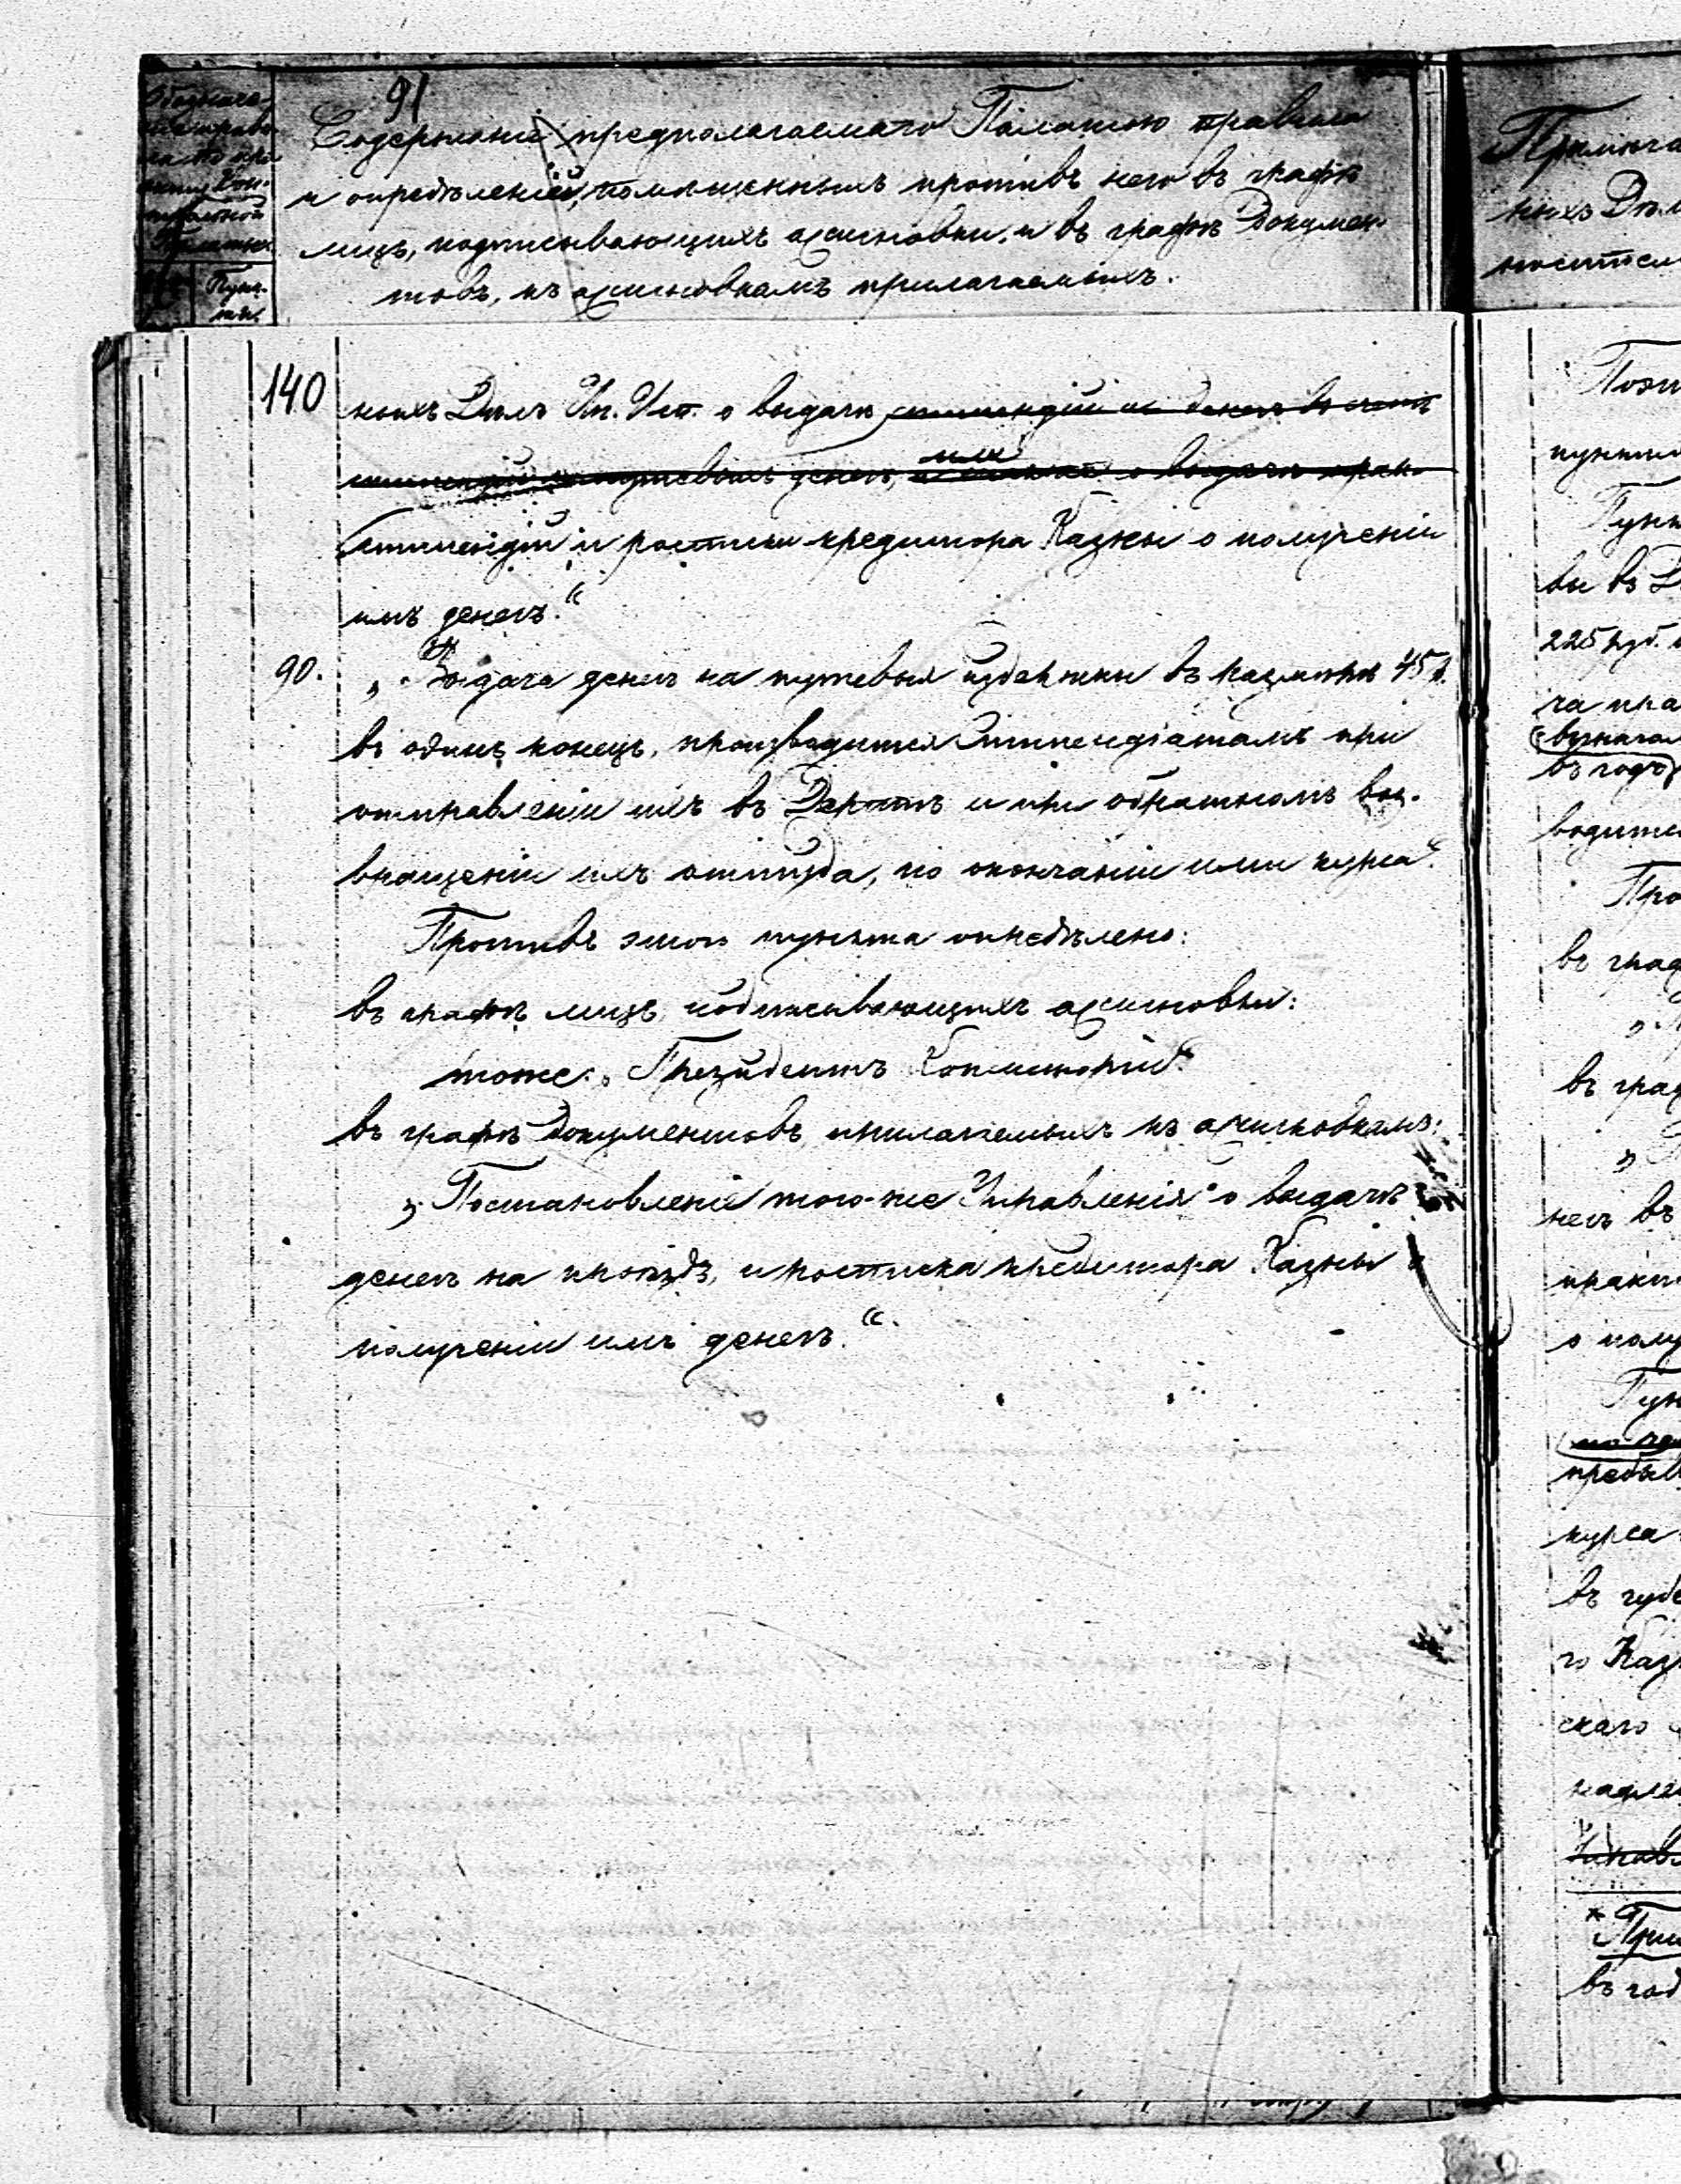 91
Обозначе-
ніе правъ
Кон-
трольной
Палаты.
Пунк-
ты.
Содержаніе предполагаемаго Палатою правила
и опредѣленій, помѣщенныхъ противъ него въ графѣ
лицъ, подписывающихъ ассигновки, и въ графѣ докумен-
товъ, къ ассигновкамъ прилагаемыхъ.
140
ныхъ Дѣлъ Уп. Уп. о выдачѣ стипендій и денегъ въ счетъ
путевыхъ денегъ, или о выдачѣ
стипендіи и росписки кредитора Казны о полученіи
имъ денегъ.“
90.
„Выдача денегъ на путевыя издержки въ размѣрѣ 45 р.
въ одинъ конецъ, производится Стипендіатамъ при
отправленіи ихъ въ Дерптъ и при обратномъ воз-
вращеніи ихъ оттуда, по окончаніи ими курса“.
Противъ этого пункта опредѣлено:
въ графѣ лицъ, подписывающихъ ассигновки:
тоже „Президентъ Консисторіи“.
въ графѣ документовъ, прилагаемыхъ къ ассигновкамъ:
„Постановленіе того-же Управленія о выдачѣ
денегъ на проѣздъ, и росписка кредитора Казны о
полученіи имъ денегъ.“
Примѣча
ныхъ Дѣл
носител
Поэт
пункт
Пунк
вы въ Д
225 руб.
ча пра
въ годъ
водител
Про
въ граф
въ граф
негъ въ
практ
о полу
Пун
пребыв
курса
въ губе
го Каз
скаго
надле
Управл
* Прим
въ год